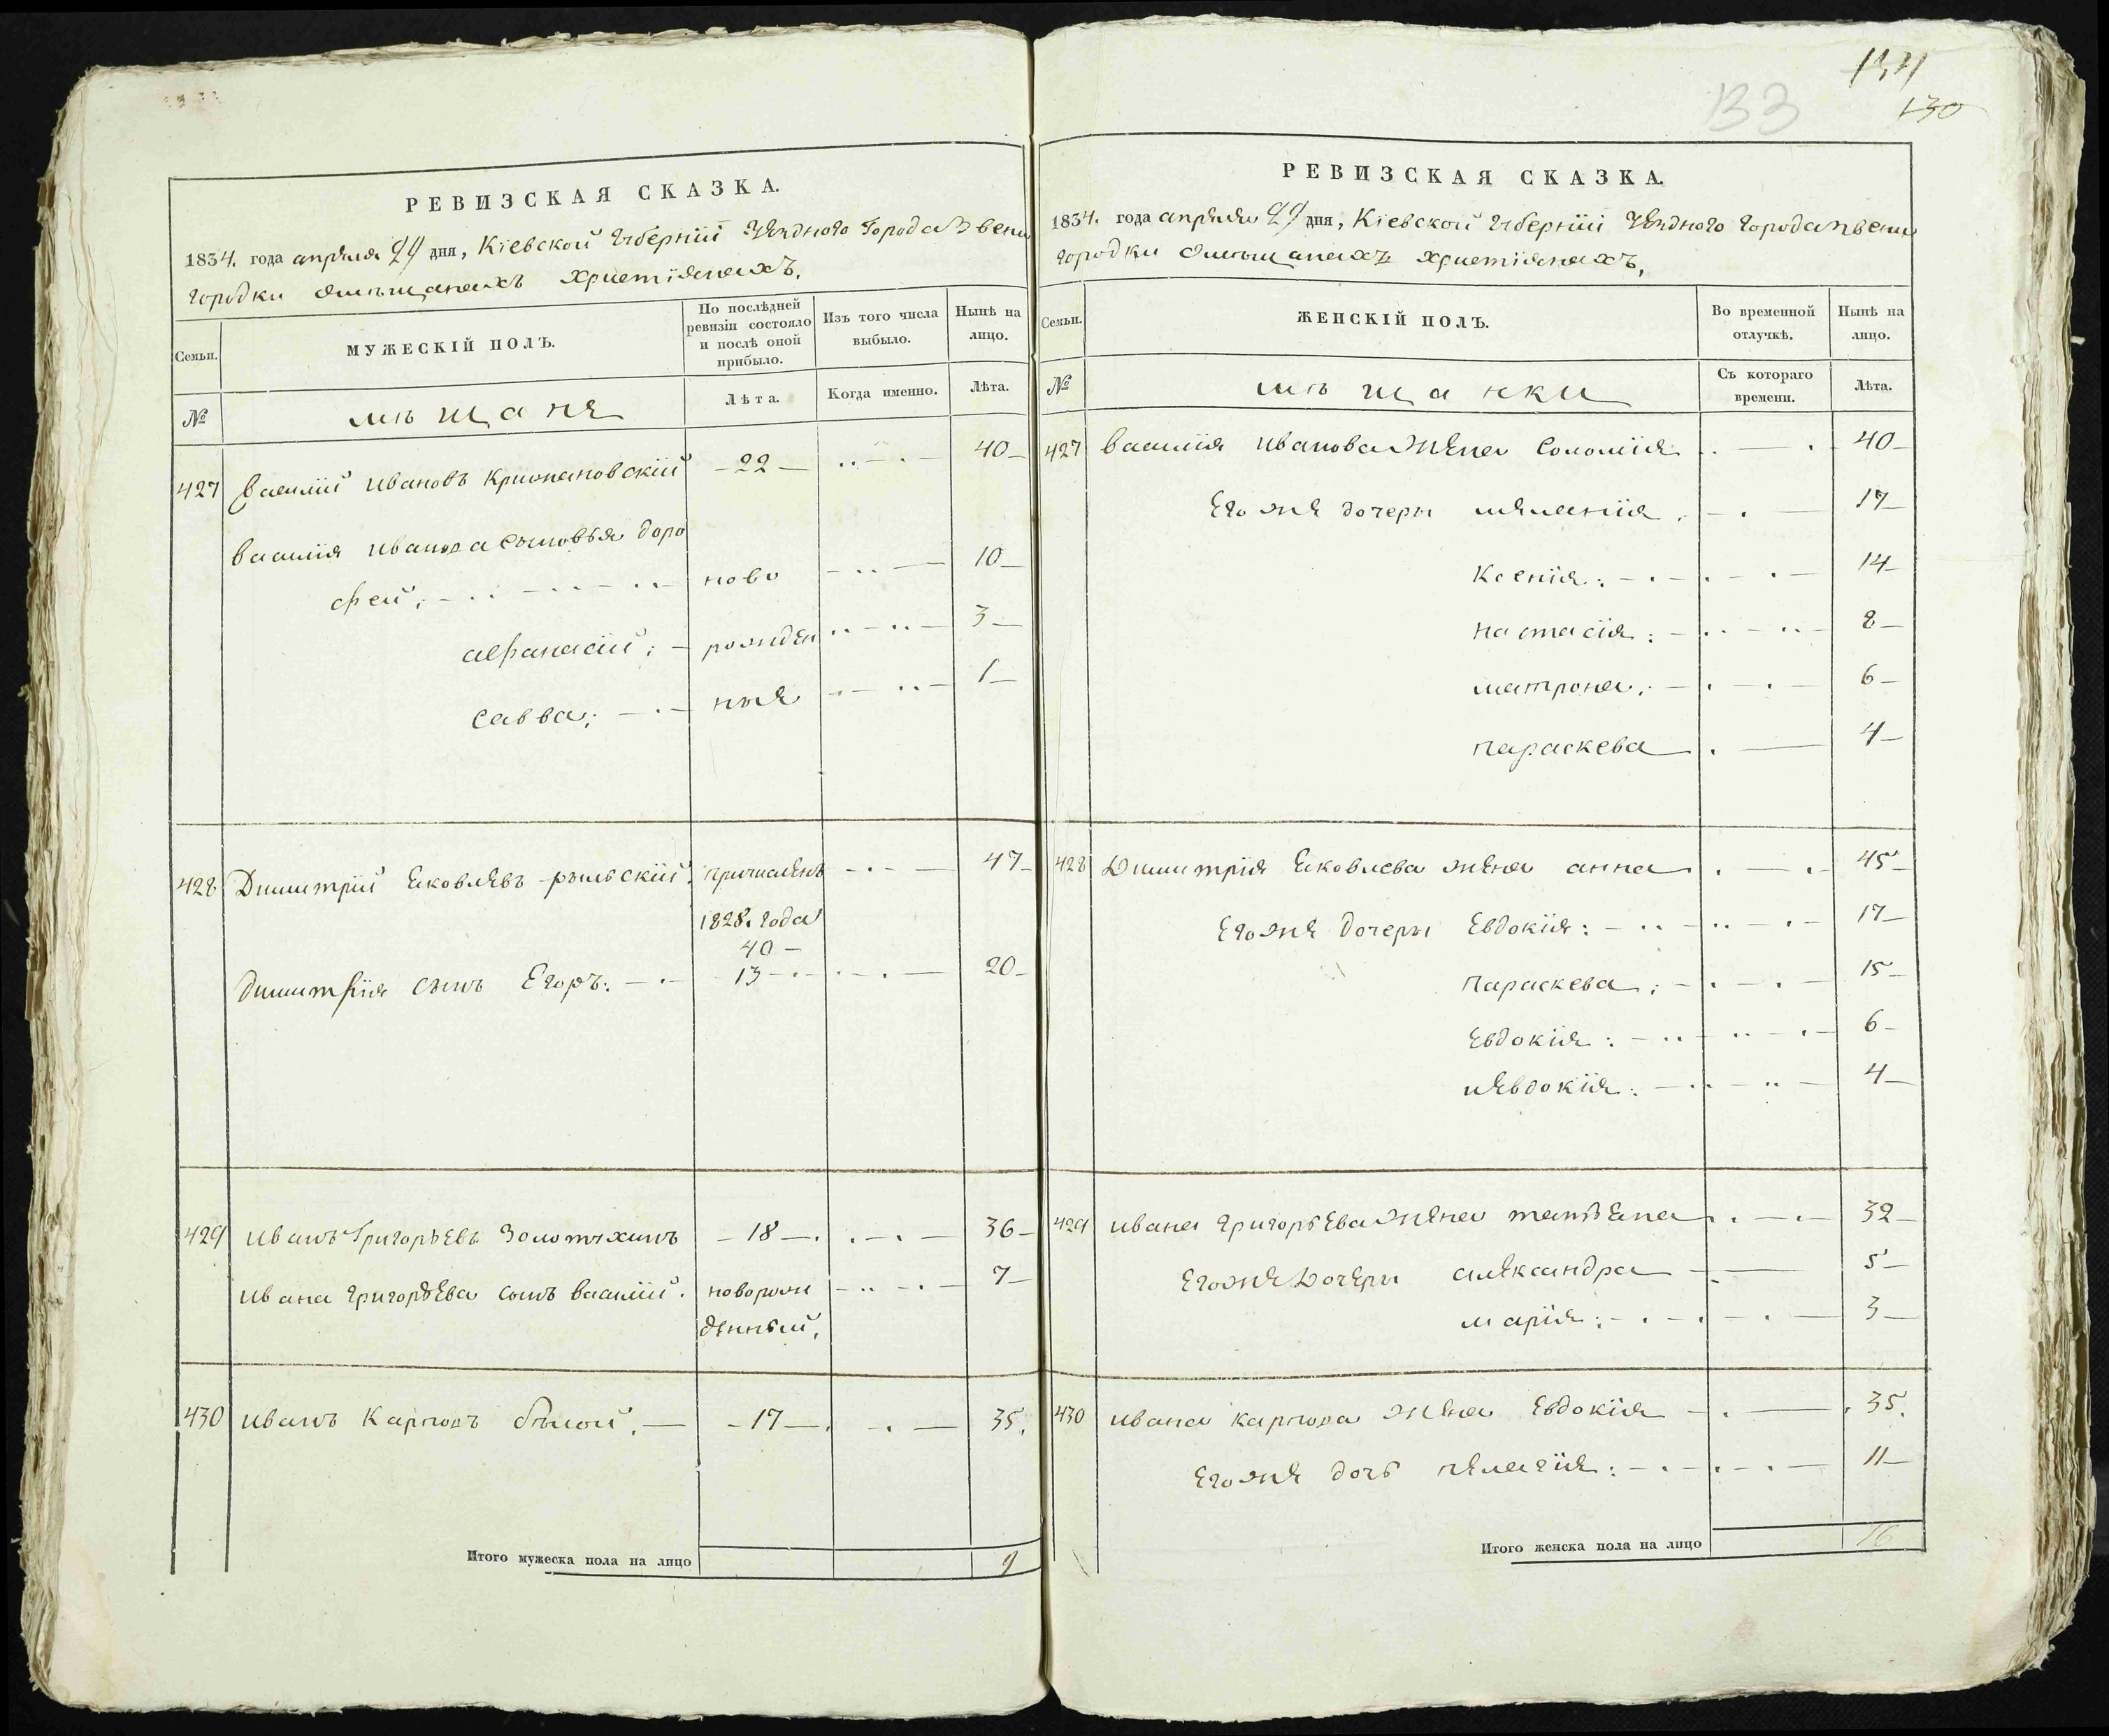 РЕВИЗСКАЯ СКАЗКА.
1834. года апреля 29 дня, Кіевской Губерніи Уезднаго Города Звени
городки омѣщанахъ христіянахъ.
Семьи.
МУЖЕСКІЙ ПОЛЪ.
По послѣдней
ревизіи состояло
и послѣ оной
прибыло.
Изъ того числа
выбыло.
Нынѣ на
лицо.
№
мѣщане
Лѣта.
Когда именно.
Лѣта.
427 Василій Ивановъ Крижановскій -22- 40-
Василія Иванова сыновья Доро
фей; ново 10-
Афанасій; рожден 3-
Савва; ные 1-
428 Димитрій Яковлевъ Рыльскій. причисленъ 47-
1828. года
40-
Димитрія сынъ Егоръ: 13 20-
429 Иванъ Григорьевъ Золотухинъ -18- 36-
Ивана Григорьева сынъ Василій. новорож 7-
денный.
430 Иванъ Карповъ Белой. -17- 35.
Итого мужеска пола на лицо 9
133
134
130
РЕВИЗСКАЯ СКАЗКА.
1834. года апреля 29 дня, Кіевской Губерніи Уезднаго Города Звени
городки омѣщанахъ христіянахъ.
Семьи.
ЖЕНСКІЙ ПОЛЪ.
Во временной
отлучкѣ.
Нынѣ на
лицо.
№
мѣщанки
Съ котораго
времени.
Лѣта.
427 Василія Иванова жена Соломія 40-
Его же дочери Меланія. 17-
Ксенія: 14-
Настасія: 8-
Матрона: 6-
Параскева 4-
428 Димитрія Яковлева жена Анна 45-
Его же дочери Евдокія: 17-
Параскева: 15-
Евдокія: 6-
и Евдокія: 4-
429 Ивана Григорьева жена Татьяна 32-
Его же дочери Александра 5-
Марія: 3-
430 Ивана Карпова жена Евдокія 35.
Его же дочь Пелагія: 11-
Итого женска пола на лицо 16